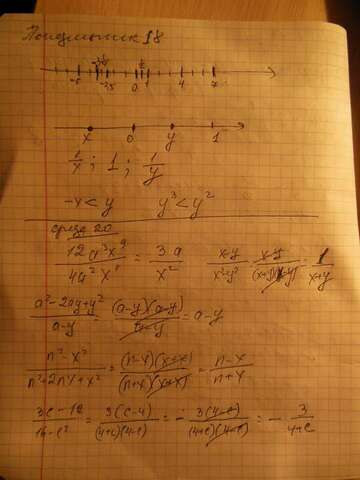 Понедельник 18
0 1 4 7
x 0 y 1
1/x ; 1 ; 1/y
-x < y y³ < y²
среда 20
12a³x⁹ / 4a²x¹¹ = 3a / x² x-y / x²-y² = x-y / (x+y)(x-y) = 1 / x+y
a²-2ay+y² / a-y = (a-y)(a-y) / a-y = a-y
n²-x² / n²+2nx+x² = (n-x)(n+x) / (n+x)(n+x) = n-x / n+x
3c-12 / 16-c² = 3(c-4) / (4+c)(4-c) = - 3(4-c) / (4+c)(4-c) = - 3 / 4+c